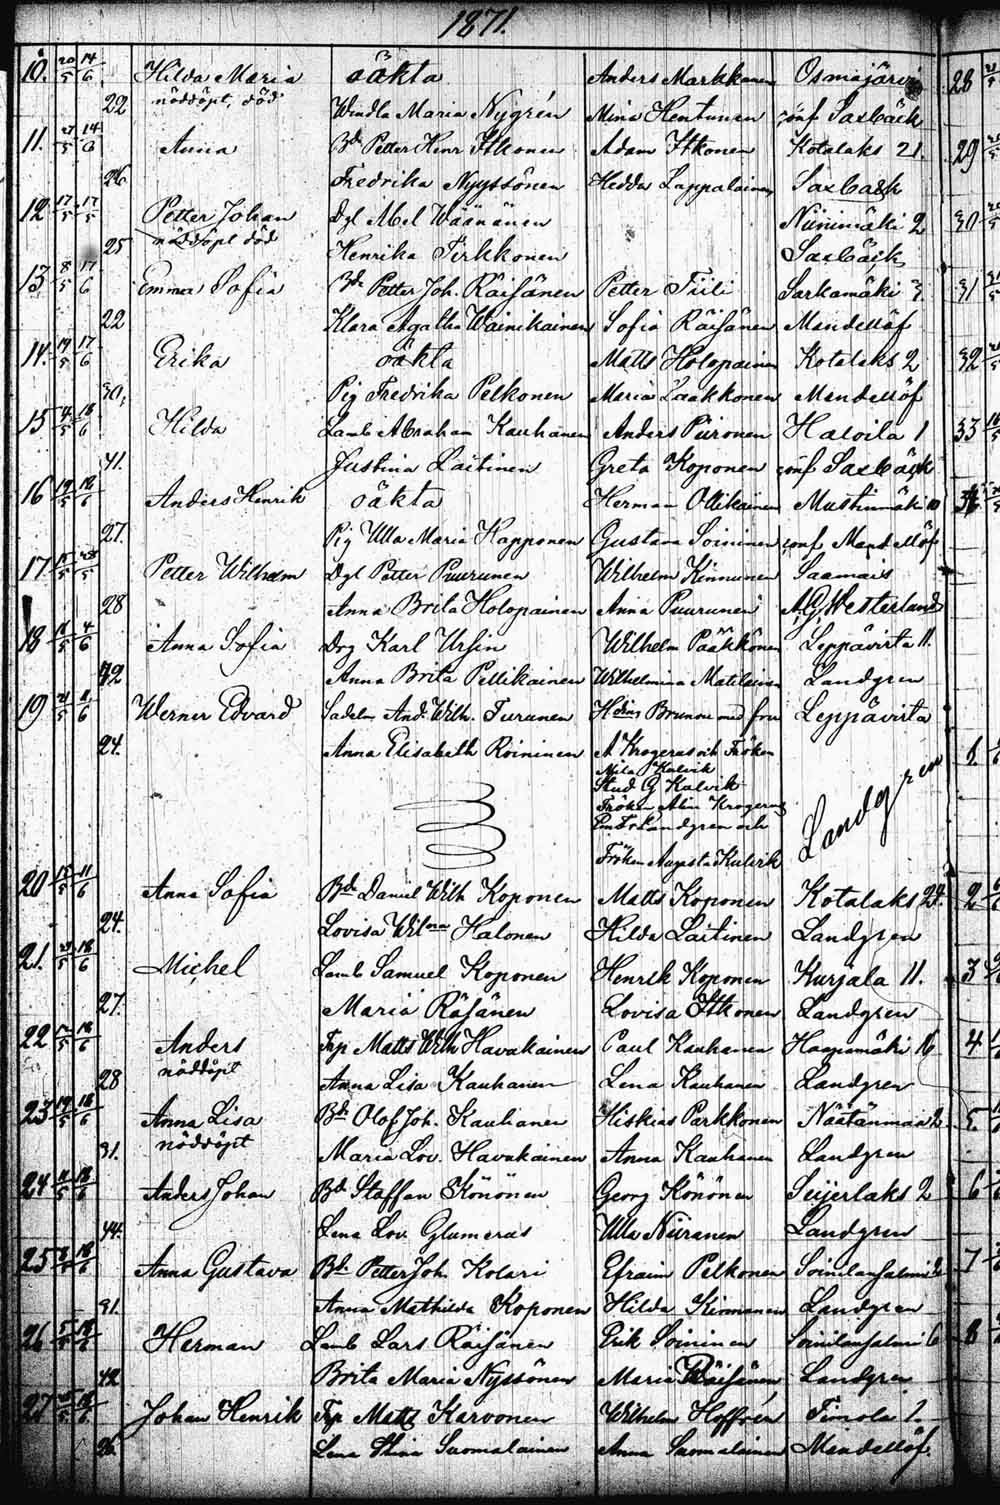 1871.
10. 20/5 14/6 Hilda Maria oäkta Anders Markkanen Osmajärvi
22 nöddöpt, död Wendla Maria Nygrén Mina Hentunen conf Saxbäck
11. 27/5 14/6 Anna Bd Petter Henr Itkonen Adam Itkonen Kotalaks 21.
26 Fredrika Nyyssönen Hedda Lappalainen Saxbäck
12 17/5 17/5 Petter Johan Dgl Abel Wäänänen Niinimäki 2
25 nöddöpt död Henrika Tirkkonen Saxbäck
13 8/5 17/6 Emma Sofia Bd Petter Joh. Räisänen Petter Tiili Sarkamäki 3
22 Klara Agatha Wainikainen Sofia Räisänen Mandellöf
14. 19/5 17/6 Erika oäkta Matts Holopainen Kotalaks 2
30. Pig Fredrika Pelkonen Maria Zaakkonen Mandellöf
15 4/5 18/6 Hilda Lamb Abraham Kauhanen Anders Piironen Haloila 1
41. Justina Laitinen Greta Koponen conf Saxbäck
16 19/5 18/6 Anders Henrik oäkta Herman Ollikainen Mustinmäki 10
27. Pig Ulla Maria Happonen Gustava Soininen conf Mandellöf
17 Petter Wilhelm Dgl Petter Puurunen Wilhelm Kinnunen Saamais
28 Anna Brita Holopainen Anna Puurunen A.G. Westerlund
18 4/6 Anna Sofia Drg Karl Ursin Wilhelm Pääkkönen Leppävirta 11.
42 Anna Brita Pellikainen Wilhelmina Matilainen Landgren
19 21/5 Werner Edvard Sadelm And. Wilh. Turunen Brunou med fru Leppävirta
24. Anna Elisabeth Roininen A Krogerus och Fröken
Kulvik
Stud G Kulvik
Fröken Alin Krogerus
Landgren och
Landgren
Fröken Augusta Kulvik
20 15/5 11/6 Anna Sofia Bd Daniel Wilh Koponen Matts Koponen Kotalaks 24.
24. Lovisa Wilma Halonen Hilda Laitinen Landgren
21. 18/6 Michel Lamb Samuel Koponen Henrik Koponen Kurjala 11.
27. Maria Räsänen Lovisa Itkonen Landgren
22 18/6 Anders Trp Matts Wilh Havukainen Paul Kauhanen Haapamäki 16
28 nöddöpt Anna Lisa Kauhanen Lena Kauhanen Landgren
23 19/5 18/6 Anna Lisa Bd Olof Joh. Kauhanen Hiskias Parkkonen Näätänmaa 2
31. nöddöpt Maria Lov. Havukainen Anna Kauhanen Landgren
24 18/6 Anders Johan Bd Staffan Könönen Georg Könönen Seijerlaks 2
44. Lena Lov. Glumerus Ulla Niiranen Landgren
25 18/6 Anna Gustava Bd Petter Joh. Kolari Efraim Pelkonen Soinilansalmi 2
31. Anna Mathilda Koponen Hilda Kinnunen Landgren
26 5/5 18/6 Herman Lamb Lars Räisänen Erik Soininen Soinilansalmi 6
42 Brita Maria Nyssönen Maria Räisänen Landgren
27 18/6 Johan Henrik Trp Matts Karvonen Wilhelm Hoffrén Timola 1.
26. Lena Stina Suomalainen Anna Suomalainen Mandellöf.
28
29
30
31
32
33
34
1.
2
3
4
5
6
7
8